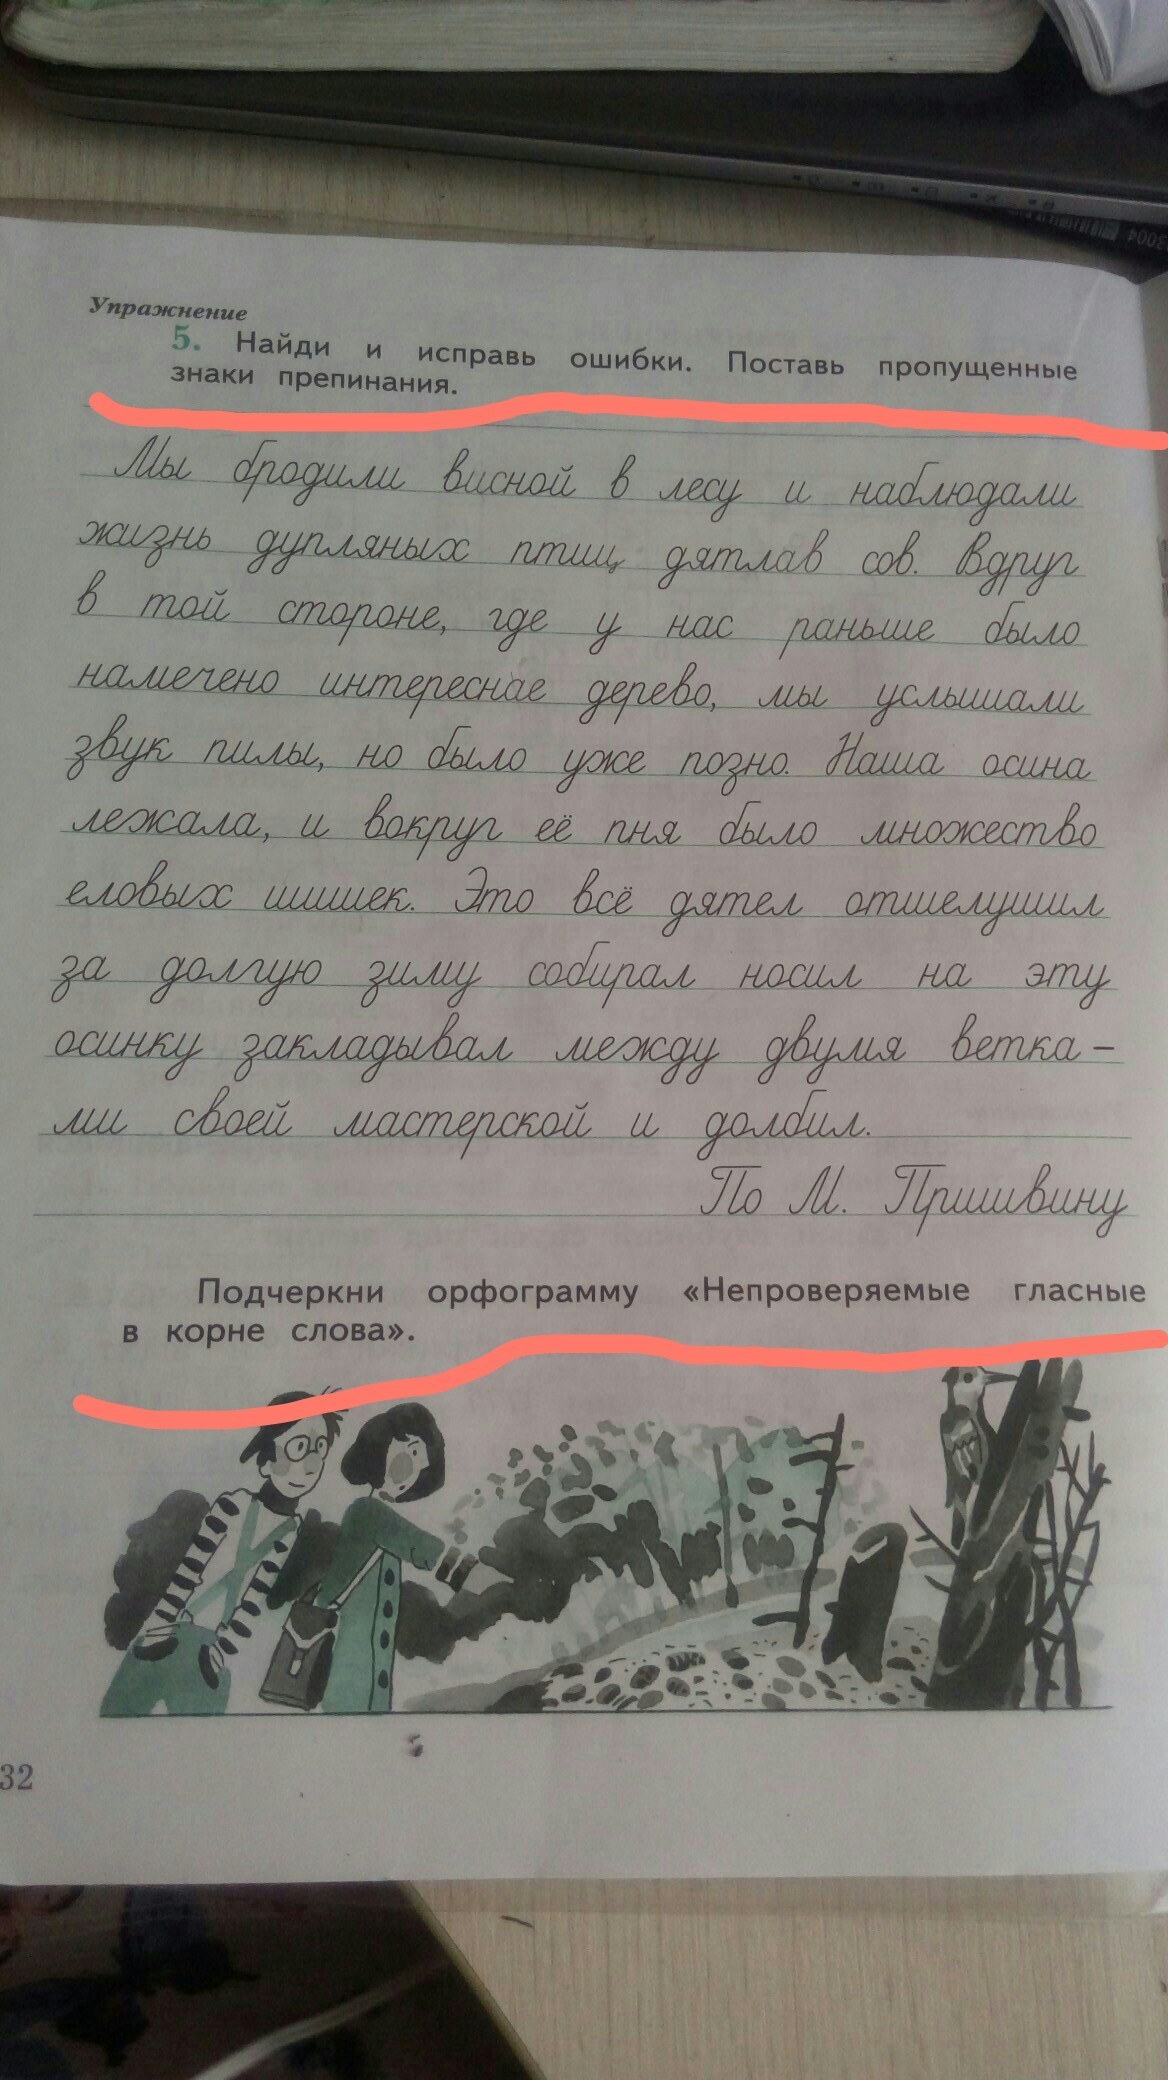 3004
Упражнение
5. Найди и исправь ошибки. Поставь пропущенные
знаки препинания.
Мы бродили висной в лесу и наблюдали
жизнь дупляных птиц дятлав сов. Вдруг
в той стороне, где у нас раньше было
намечено интереснае дерево, мы услышали
звук пилы, но было уже позно. Наша осина
лежала, и вокруг её пня было множество
еловых шишек. Это всё дятел отшелушил
за долгую зиму собирал носил на эту
осинку закладывал между двумя ветка-
ми своей мастерской и долбил.
По М. Пришвину
Подчеркни орфограмму «Непроверяемые гласные
в корне слова».
32